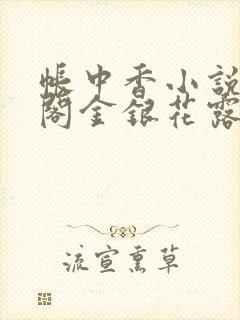 帳中香小説
閣金銀花露
流宣熏草